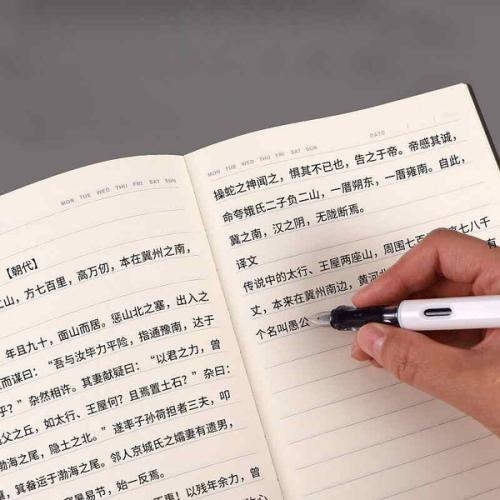 MON TUE WED THU FRI SAT SUN
【朝代】
之山，方七百里，高万仞，本在冀州之南，
年且九十，面山而居。惩山北之塞，出入之
而谋曰：“吾与汝毕力平险，指通豫南，达于
乎？”杂然相许。其妻献疑曰：“以君之力，曾
父之丘，如太行、王屋何？且焉置土石？”杂曰：
渤海之尾，隐土之北。”遂率子孙荷担者三夫，叩
箕畚运于渤海之尾。邻人京城氏之孀妻有遗男，
易节，始一反焉。
惠！以残年余力，曾
MON TUE WED THU FRI SAT SUN
DATE
操蛇之神闻之，惧其不已也，告之于帝。帝感其诚，
命夸娥氏二子负二山，一厝朔东，一厝雍南。自此，
冀之南，汉之阴，无陇断焉。
译文
传说中的太行、王屋两座山，周围七百里，高七八千
丈，本来在冀州南边，黄河北
个名叫愚公